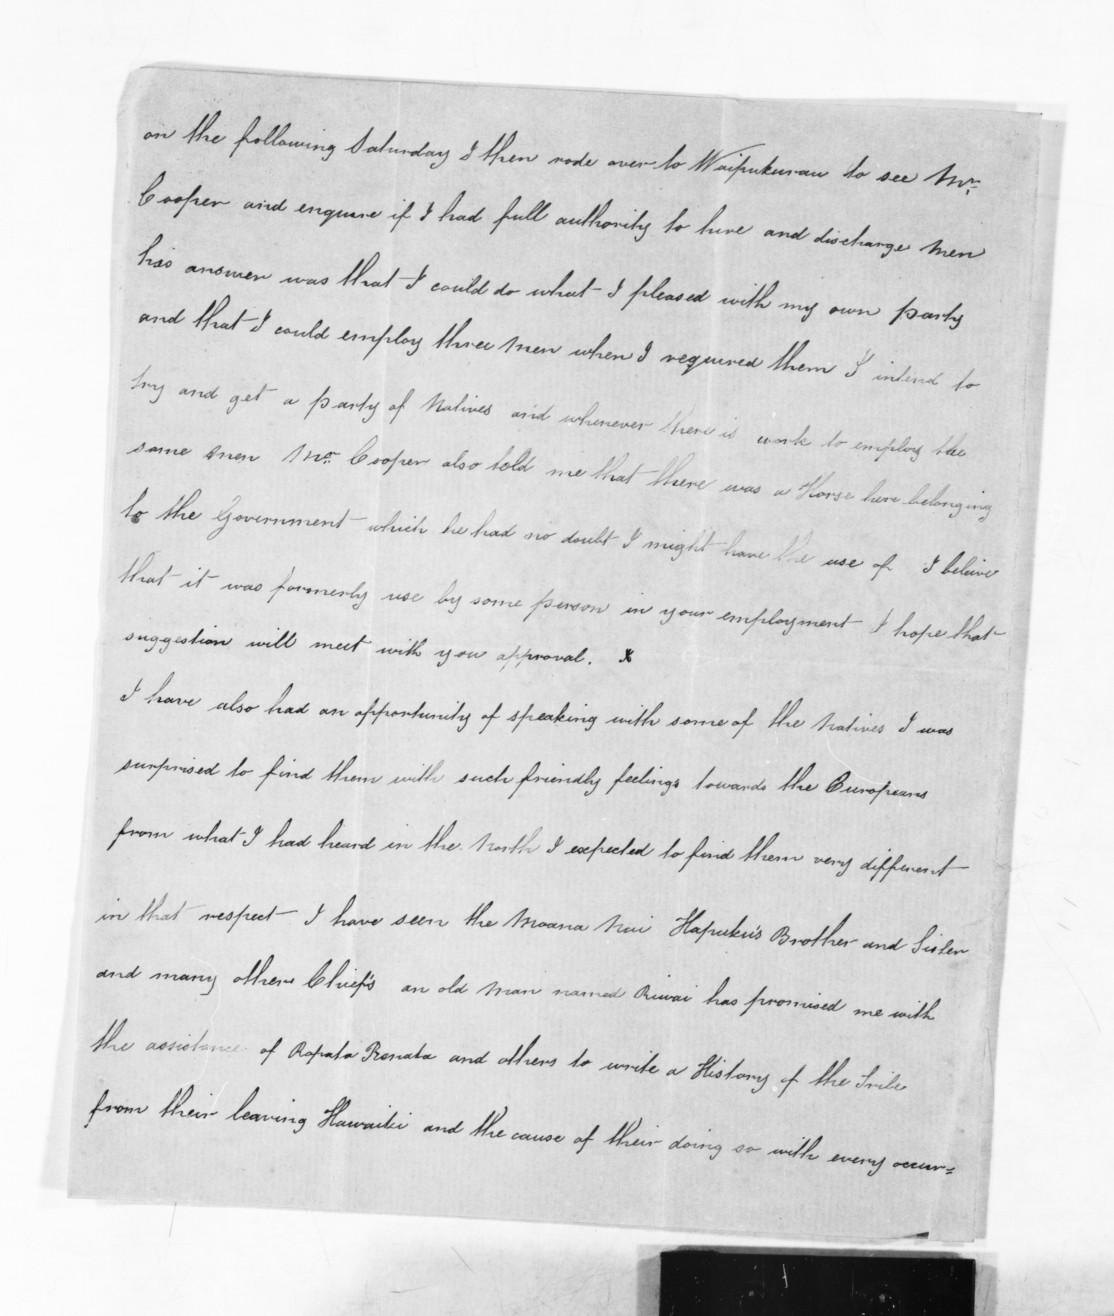 on the following Saturday I then rode over to Waipukurau to see Mr.
Cooper and enquire if I had full authority to hire and discharge men
his answer was that I could do what I pleased with my own party
and that I could employ three men when I required them I intend to
try and get a party of Natives and whenever there is work to employ the
same men Mr. Cooper also told me that there was a Horse here belonging
to the Government which he had no doubt I might have the use of I belive
that it was formerly use by some person in your employment I hope that
suggestion will meet with you approval. x
I have also had an opportunity of speaking with some of the Natives I was
surprised to find them with such friendly feelings towards the Europeans
from what I had heard in the North I expected to find them very different
in that respect I have seen the Moana Nui Hapuku's Brother and Sister
and many others Chief's an old man named Riwai has promised me with
the assistance of Ropata Renata and others to write a History of the Tribe
from their leaving Hawaiki and the cause of their doing so with every occur=